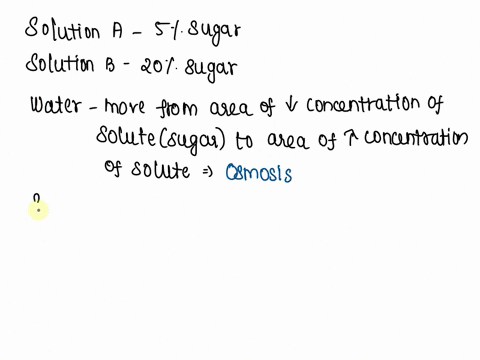 Solution A - 5% sugar
Solution B - 20% sugar
Water - move from area of ↓ concentration of
solute (sugar) to area of ↑ concentration
of solute ⇒ Osmosis